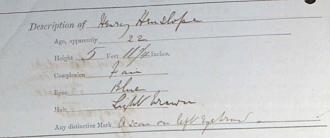 Description of Henry Hinslope
Age, apparently 22
Height 5 Feet 11 3/4 Inches.
Complexion Fair
Eyes Blue
Hair Light Brown
Any distinctive Mark A scar on left Eyebrow